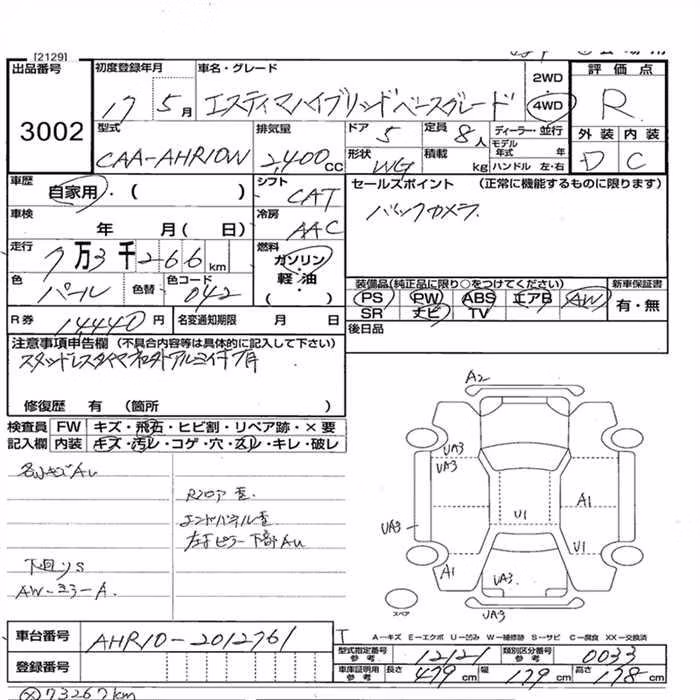 [2129]
出品番号
3002
初度登録年月 車名・グレード
17 5月 エスティマハイブリッドベースグレード
2WD
4WD
評価点
R
外装 内装
D C
型式 排気量 ドア 定員 ディーラー・並行
CAA-AHR10W 2,400CC 5 8人
形状 積載 モデル年式 年
WG kg ハンドル 左・右
車歴 自家用・( )
シフト CAT
セールスポイント (正常に機能するものに限ります)
バックカメラ
車検 年 月( 日)
冷房 AAC
走行 7万3千266km
燃料 ガソリン・軽油
( )
色 パール 色替 色コード 042
装備品(純正品に限り○をつけてください) 新車保証書
PS PW ABS エアB AW 有・無
SR ナビ TV
R券 14440円 名変通知期限 月 日
後日品
注意事項申告欄 (不具合内容等は具体的に記入して下さい)
修復歴 有 (箇所 )
検査員 FW キズ・飛石・ヒビ割・リペア跡・×要
記入欄 内装 キズ・汚レ・コゲ・穴・スレ・キレ・破レ
Rフロア歪
エンドパネル歪
左右ピラー下部AU
下回りS
A2
UA3
UA3
UA3
U1
A1
U1
A1
UA3
UA3
スペア
A-キズ E-エクボ U-凹み W-補修跡 S-サビ C-腐食 XX-交換済
車台番号 AHR10-2012761
登録番号
型式指定番号 参考 12121 類別区分番号 参考 0033
車庫証明用 参考 長さ 479cm 幅 179cm 高さ 178cm
73267km